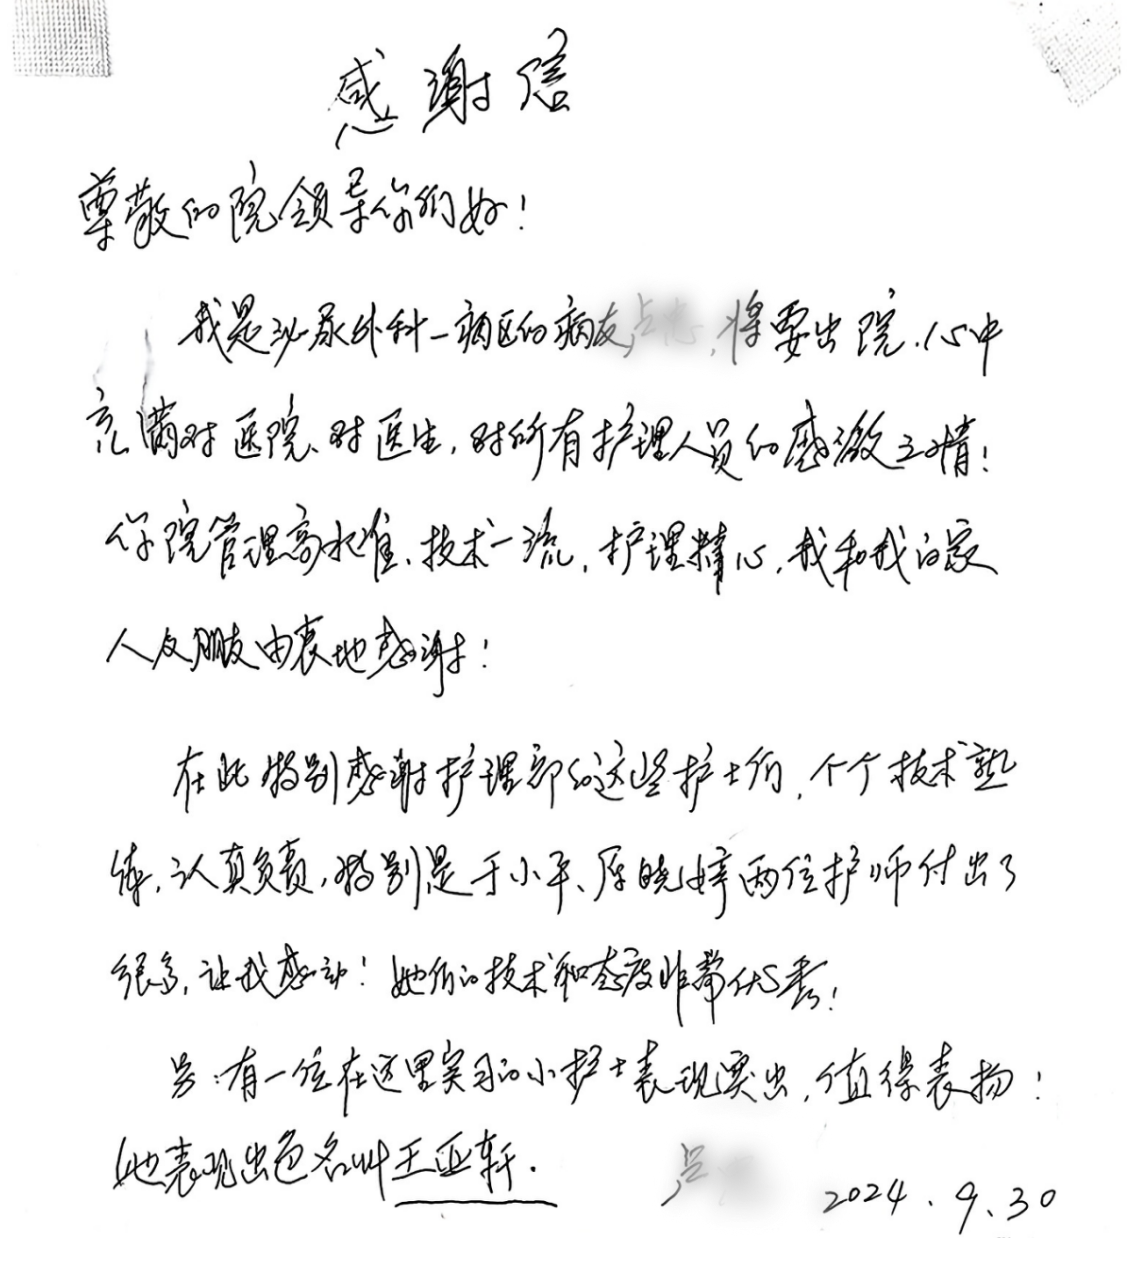 感谢信
尊敬的院领导你们好！
我是泌尿外科一病区的病友，将要出院，心中
充满对医院、对医生，对所有护理人员的感激之情！
你院管理高水准、技术一流，护理精心，我和我的家
人及朋友由衷地感谢！
在此特别感谢护理部的这些护士们，个个技术熟
练，认真负责，特别是于小平、厍晓婷两位护师付出了
很多，让我感动！她们的技术和态度非常优秀！
另：有一位在这里实习的小护士表现突出，值得表扬！
她表现出色名叫王亚轩.
2024.9.30